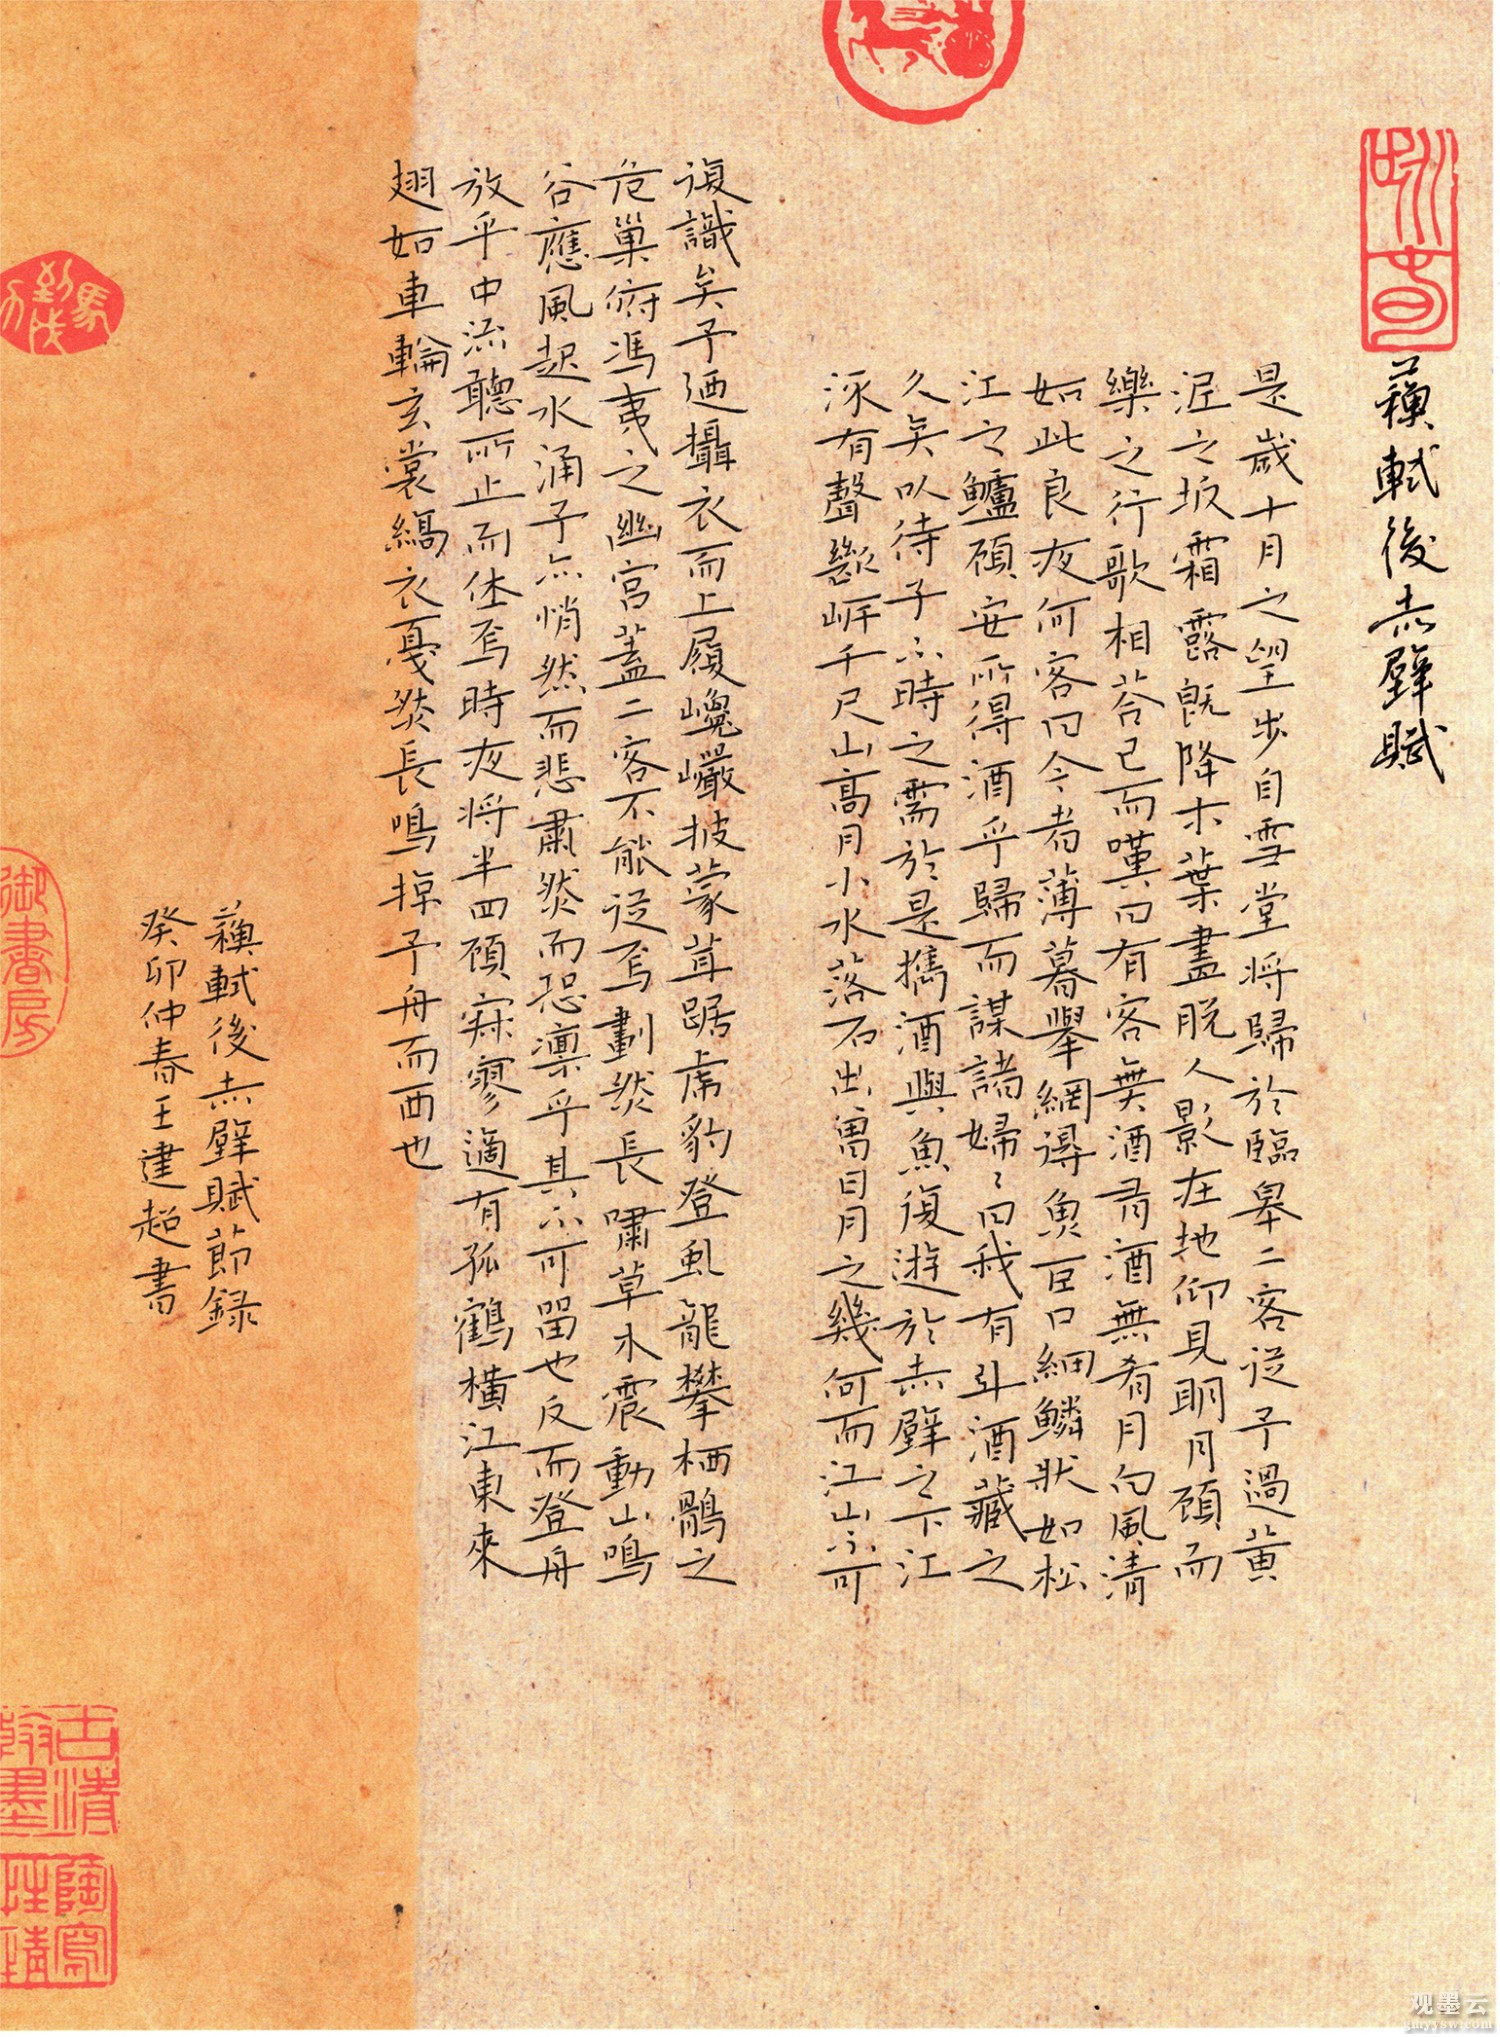 蘇軾後赤壁賦
是歲十月之望步自雪堂將歸於臨皋二客從予過黃
泥之坂霜露既降木葉盡脫人影在地仰見明月顧而
樂之行歌相荅已而嘆曰有客無酒有酒無肴月白風清
如此良夜何客曰今者薄暮舉網得魚巨口細鱗狀如松
江之鱸顧安所得酒乎歸而謀諸婦〻曰我有斗酒藏之
久矣以待子不時之需於是攜酒與魚復遊於赤壁之下江
流有聲斷岸千尺山高月小水落石出曾日月之幾何而江山不可
復識矣予迺攝衣而上履巉巖披蒙茸踞虎豹登虬龍攀栖鶻之
危巢俯馮夷之幽宮蓋二客不能從焉劃然長嘯草木震動山鳴
谷應風起水涌予亦悄然而悲肅然而恐凜乎其不可留也反而登舟
放乎中流聽所止而休焉時夜將半四顧寂寥適有孤鶴橫江東來
翅如車輪玄裳縞衣戛然長鳴掠予舟而西也
蘇軾後赤壁賦節録
癸卯仲春王建超書
御書房
馬到成功
古清
翰墨
陶寫
性情
观墨云
jmyysw.com